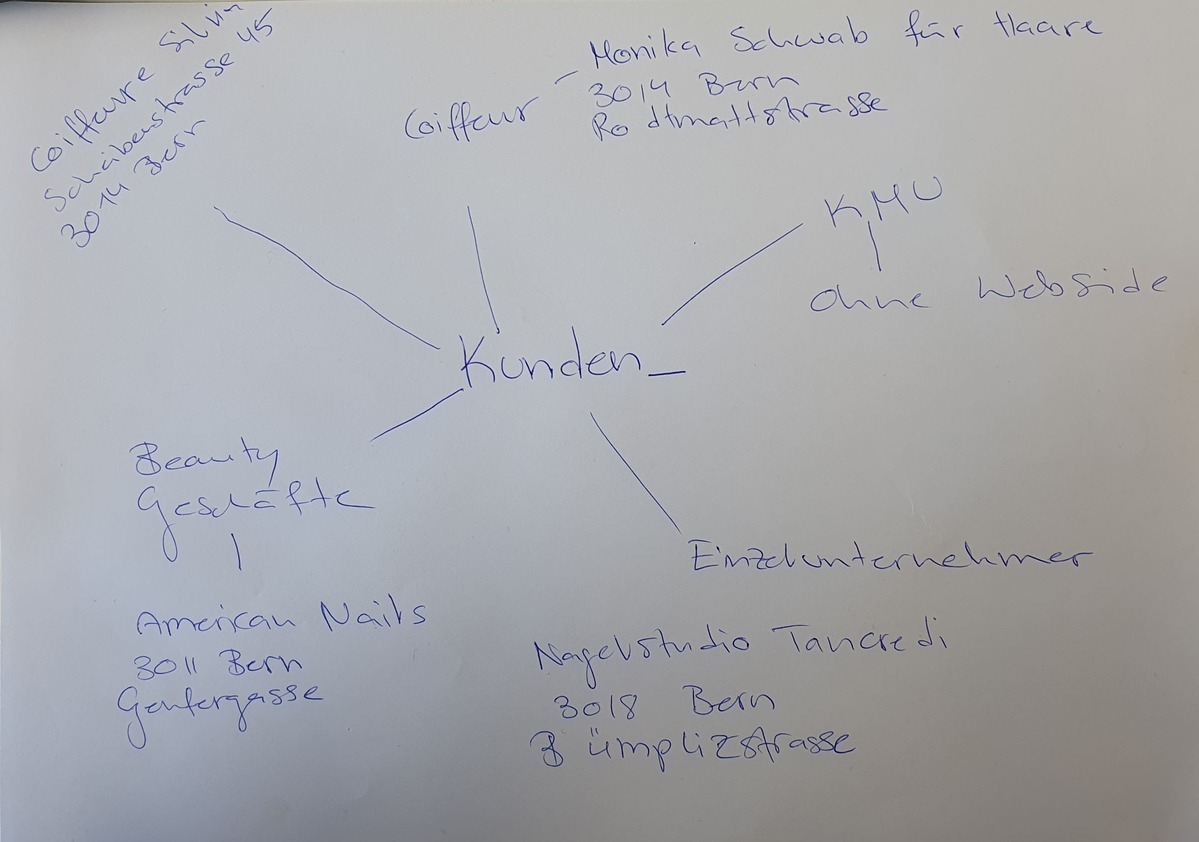 Coiffeure Silvia
Scheibenstrasse 45
3014 Bern
Coiffeur
Monika Schwab für Haare
3014 Bern
Rodtmattstrasse
KMU
Ohne Webside
Kunden
Beauty
Geschäfte
American Nails
3011 Bern
Genfergasse
Einzelunternehmer
Nagelstudio Tancredi
3018 Bern
Bümplizstrasse